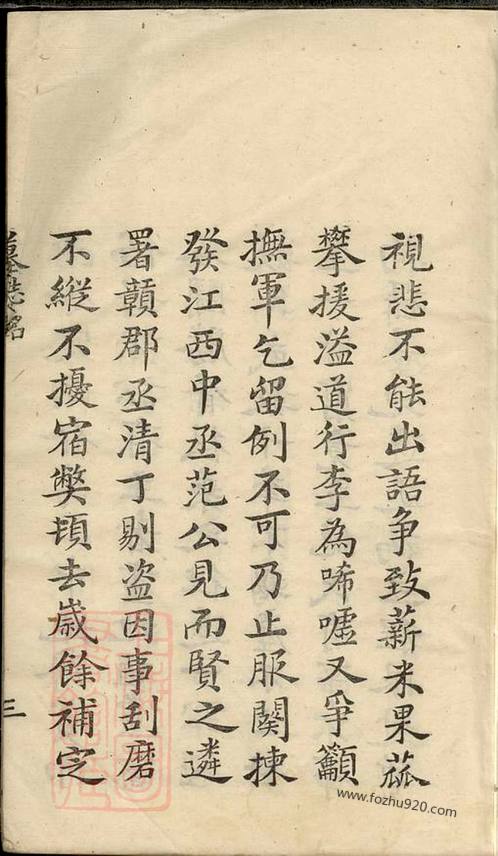 視悲不能出語争致薪米果蓏
攀援溢道行李為唏嘘又爭籲
撫軍乞留例不可乃止服闋揀
發江西中丞范公見而賢之遴
署贛郡丞清丁剔盗因事刮磨
不縱不擾宿獘頃去歲餘補定
墓誌銘
三
www.fozhu920.com